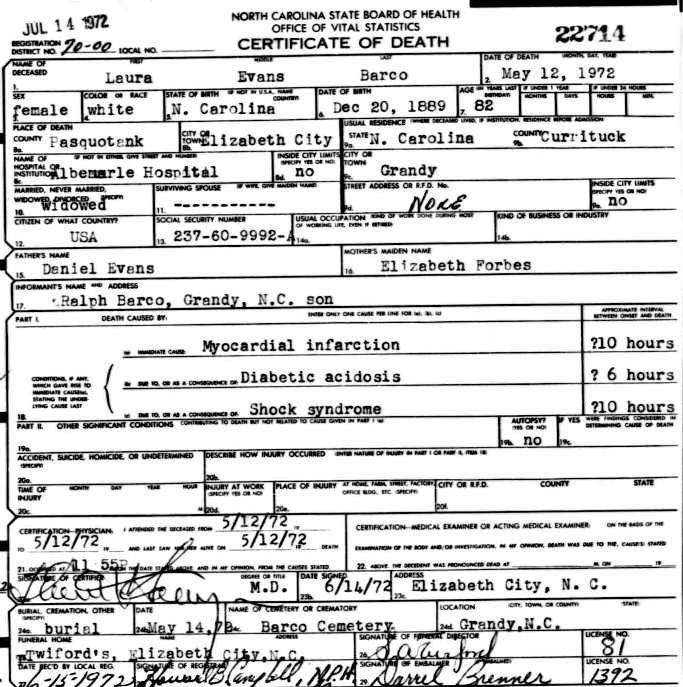 JUL 14 1972
NORTH CAROLINA STATE BOARD OF HEALTH
OFFICE OF VITAL STATISTICS
CERTIFICATE OF DEATH
22714
REGISTRATION DISTRICT NO. 70-00 LOCAL NO.
NAME OF DECEASED FIRST MIDDLE LAST DATE OF DEATH (MONTH, DAY, YEAR)
1. Laura Evans Barco 2. May 12, 1972
SEX COLOR OR RACE STATE OF BIRTH (IF NOT IN U.S.A., NAME COUNTRY) DATE OF BIRTH AGE (IN YEARS LAST BIRTHDAY) IF UNDER 1 YEAR MONTHS DAYS IF UNDER 24 HOURS HOURS MIN.
female white N. Carolina 6. Dec 20, 1889 7. 82
PLACE OF DEATH USUAL RESIDENCE (WHERE DECEASED LIVED, IF INSTITUTION, RESIDENCE BEFORE ADMISSION)
COUNTY Pasquotank CITY OR TOWN Elizabeth City STATE N. Carolina COUNTY Currituck
8a. 8b. 9a. 9b.
NAME OF HOSPITAL OR INSTITUTION (IF NOT IN EITHER, GIVE STREET AND NUMBER) INSIDE CITY LIMITS (SPECIFY YES OR NO) CITY OR TOWN
8c. Albemarle Hospital 8d. no 9c. Grandy
MARRIED, NEVER MARRIED, WIDOWED, DIVORCED (SPECIFY) SURVIVING SPOUSE (IF WIFE, GIVE MAIDEN NAME) STREET ADDRESS OR R.F.D. No. INSIDE CITY LIMITS (SPECIFY YES OR NO)
10. Widowed 11. ------------ 9d. NONE 9e. no
CITIZEN OF WHAT COUNTRY? SOCIAL SECURITY NUMBER USUAL OCCUPATION (KIND OF WORK DONE DURING MOST OF WORKING LIFE, EVEN IF RETIRED) KIND OF BUSINESS OR INDUSTRY
12. USA 13. 237-60-9992-A 14a. 14b.
FATHER'S NAME MOTHER'S MAIDEN NAME
15. Daniel Evans 16. Elizabeth Forbes
INFORMANT'S NAME AND ADDRESS
17. Ralph Barco, Grandy, N.C. son
PART I. DEATH CAUSED BY: ENTER ONLY ONE CAUSE PER LINE FOR (a), (b), (c) APPROXIMATE INTERVAL BETWEEN ONSET AND DEATH
(a) IMMEDIATE CAUSE: Myocardial infarction ?10 hours
CONDITIONS, IF ANY, WHICH GAVE RISE TO IMMEDIATE CAUSE(a), STATING THE UNDERLYING CAUSE LAST
(b) DUE TO, OR AS A CONSEQUENCE OF: Diabetic acidosis ? 6 hours
18. (c) DUE TO, OR AS A CONSEQUENCE OF: Shock syndrome ?10 hours
PART II. OTHER SIGNIFICANT CONDITIONS CONTRIBUTING TO DEATH BUT NOT RELATED TO CAUSE GIVEN IN PART I (a) AUTOPSY? (YES OR NO) IF YES WERE FINDINGS CONSIDERED IN DETERMINING CAUSE OF DEATH
19a. 19b. no 19c.
ACCIDENT, SUICIDE, HOMICIDE, OR UNDETERMINED (SPECIFY) DESCRIBE HOW INJURY OCCURRED (ENTER NATURE OF INJURY IN PART I OR PART II, ITEM 18)
20a. 20b.
TIME OF INJURY MONTH DAY YEAR HOUR INJURY AT WORK (SPECIFY YES OR NO) PLACE OF INJURY (AT HOME, FARM, STREET, FACTORY, OFFICE BLDG., ETC. (SPECIFY) CITY OR R.F.D. COUNTY STATE
20c. M 20d. 20e. 20f.
CERTIFICATION-PHYSICIAN: I ATTENDED THE DECEASED FROM 5/12/72 19 CERTIFICATION-MEDICAL EXAMINER OR ACTING MEDICAL EXAMINER: ON THE BASIS OF THE
TO 5/12/72 19 AND LAST SAW ALIVE ON 5/12/72 19 DEATH EXAMINATION OF THE BODY AND/OR INVESTIGATION, IN MY OPINION, DEATH WAS DUE TO THE, CAUSE(S) STATED
21. OCCURRED AT 11 55P ON THE DATE STATED ABOVE, AND IN MY OPINION, FROM THE CAUSES STATED 22. ABOVE. THE DECEDENT WAS PRONOUNCED DEAD AT M. ON 19
SIGNATURE OF CERTIFIER DEGREE OR TITLE DATE SIGNED ADDRESS
M.D. 23b. 6/14/72 23c. Elizabeth City, N. C.
BURIAL, CREMATION, OTHER (SPECIFY) DATE NAME OF CEMETERY OR CREMATORY LOCATION (CITY, TOWN, OR COUNTY) (STATE)
24a. burial 24b. May 14, 72 24c. Barco Cemetery 24d. Grandy, N.C.
FUNERAL HOME NAME ADDRESS SIGNATURE OF FUNERAL DIRECTOR LICENSE NO.
Twiford's, Elizabeth City, N.C. 81
DATE REC'D BY LOCAL REG. SIGNATURE OF REGISTRAR SIGNATURE OF EMBALMER LICENSE NO.
6-15-1972 Campbell, M.P.H. 29. Darrel Brenner 1392